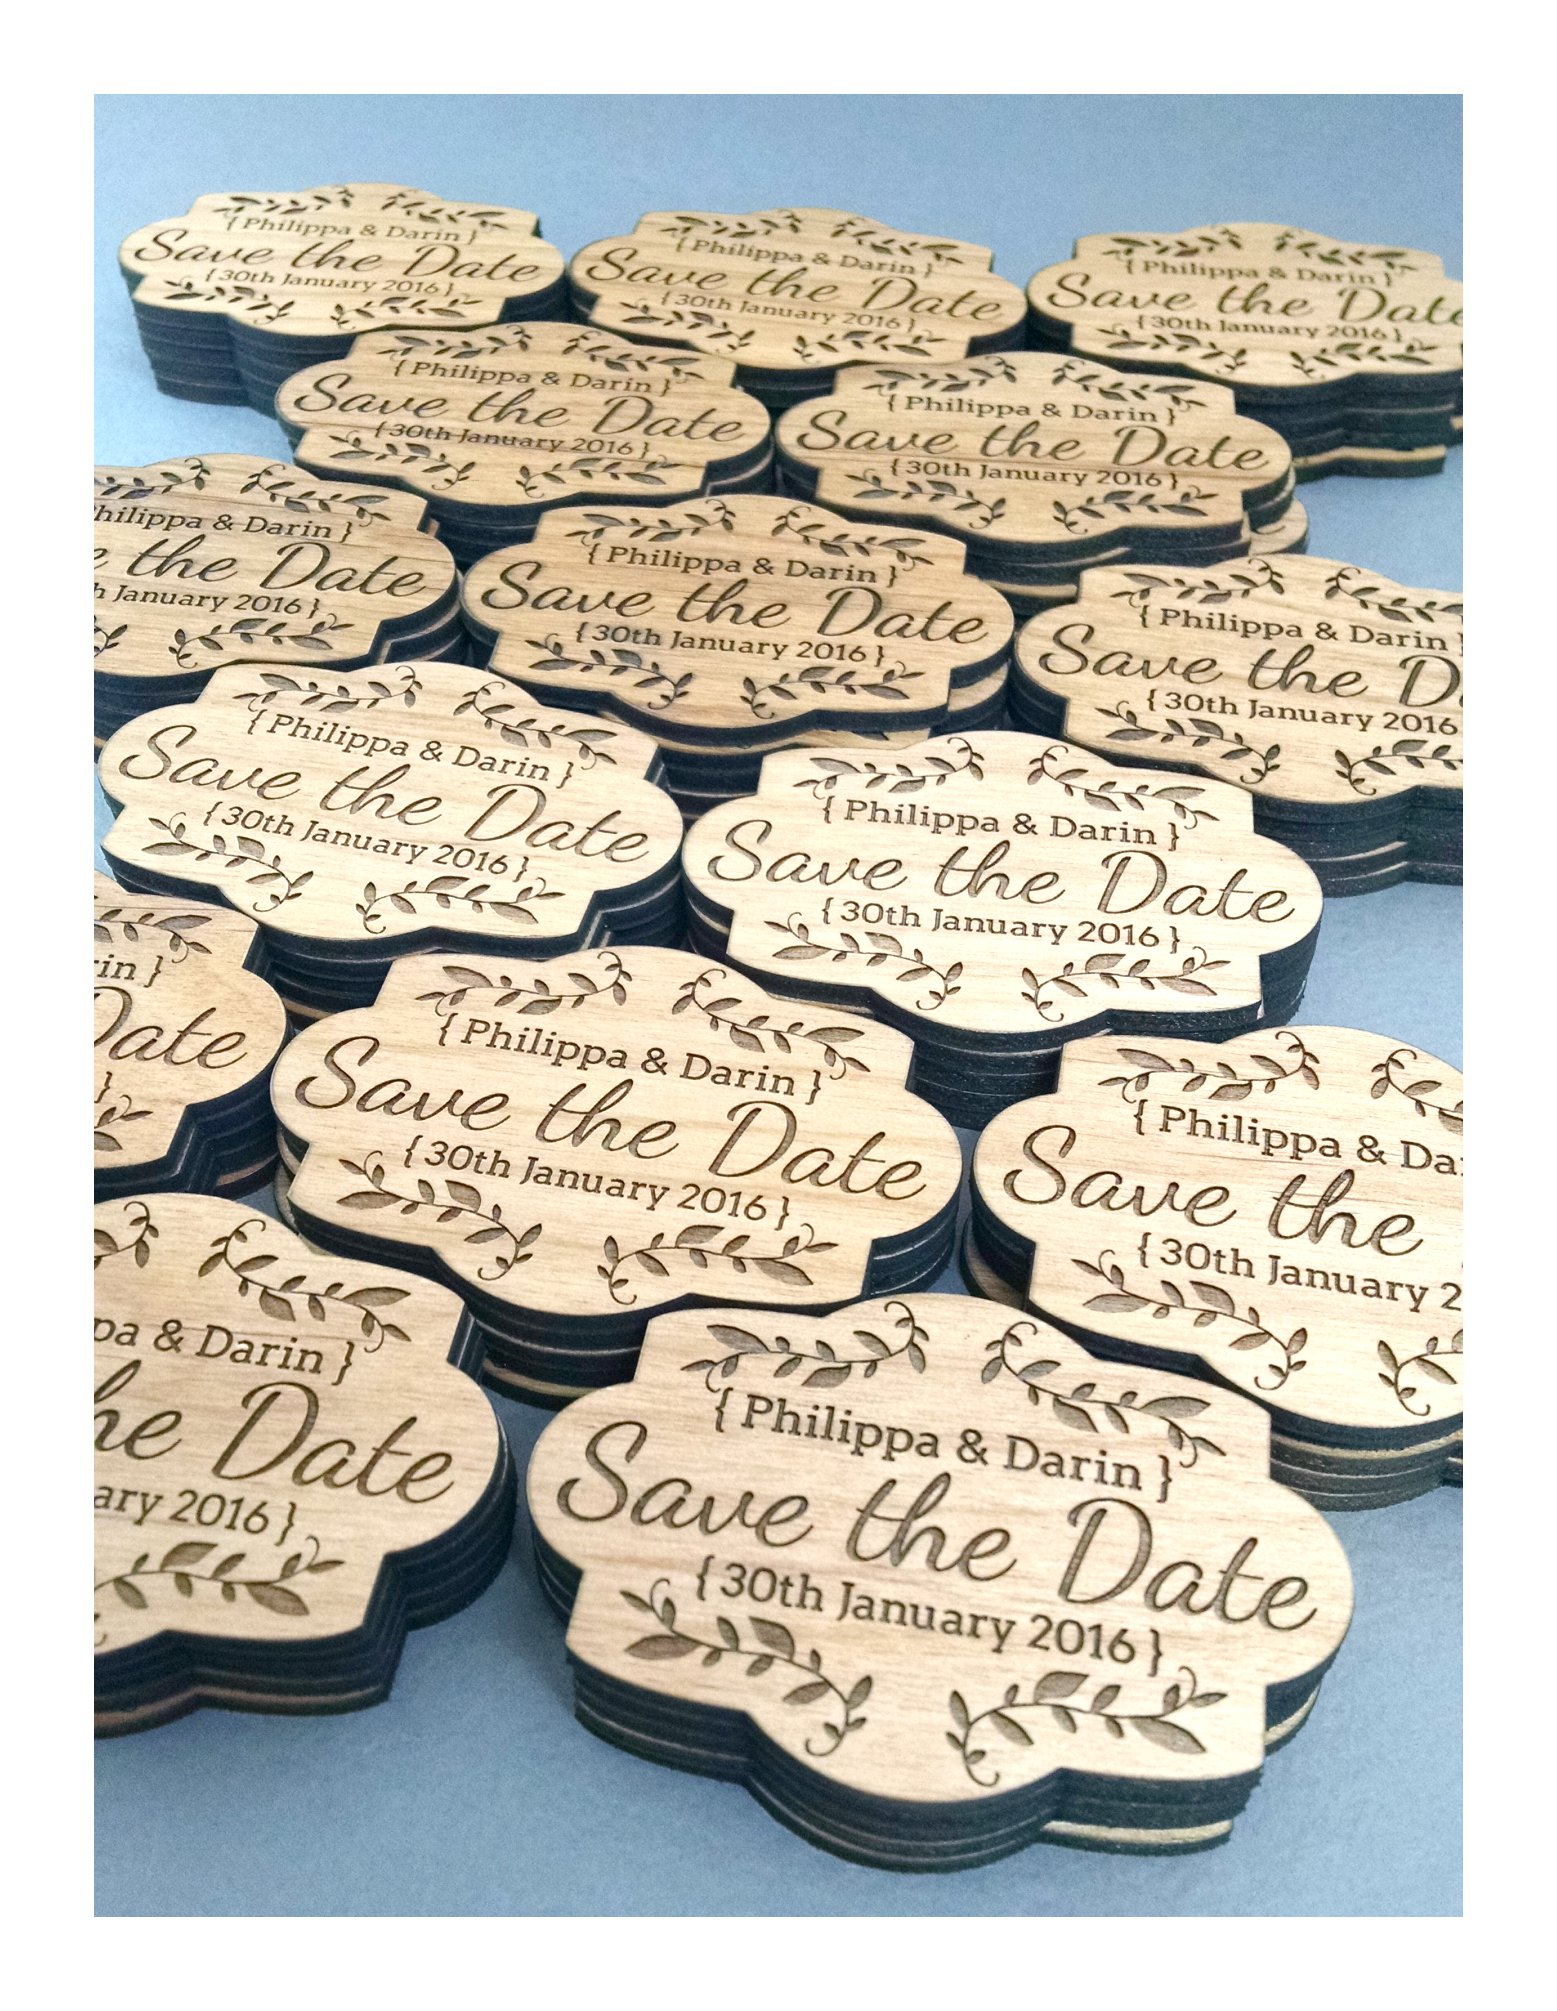 { Philippa & Darin }
Save the Date
{ 30th January 2016 }
{ Philippa & Darin }
Save the Date
{ 30th January 2016 }
{ Philippa & Darin }
Save the Date
{ 30th January 2016 }
{ Philippa & Darin }
Save the Date
{ 30th January 2016 }
{ Philippa & Darin }
Save the Date
{ 30th January 2016 }
hilippa & Darin }
e the Date
h January 2016 }
{ Philippa & Darin }
Save the Date
{ 30th January 2016 }
{ Philippa & Darin }
Save the Da
{ 30th January 2016
{ Philippa & Darin }
Save the Date
{ 30th January 2016 }
{ Philippa & Darin }
Save the Date
{ 30th January 2016 }
rin }
Date
}
{ Philippa & Darin }
Save the Date
{ 30th January 2016 }
{ Philippa & Da
Save the
{ 30th January 2
pa & Darin }
he Date
ary 2016 }
{ Philippa & Darin }
Save the Date
{ 30th January 2016 }